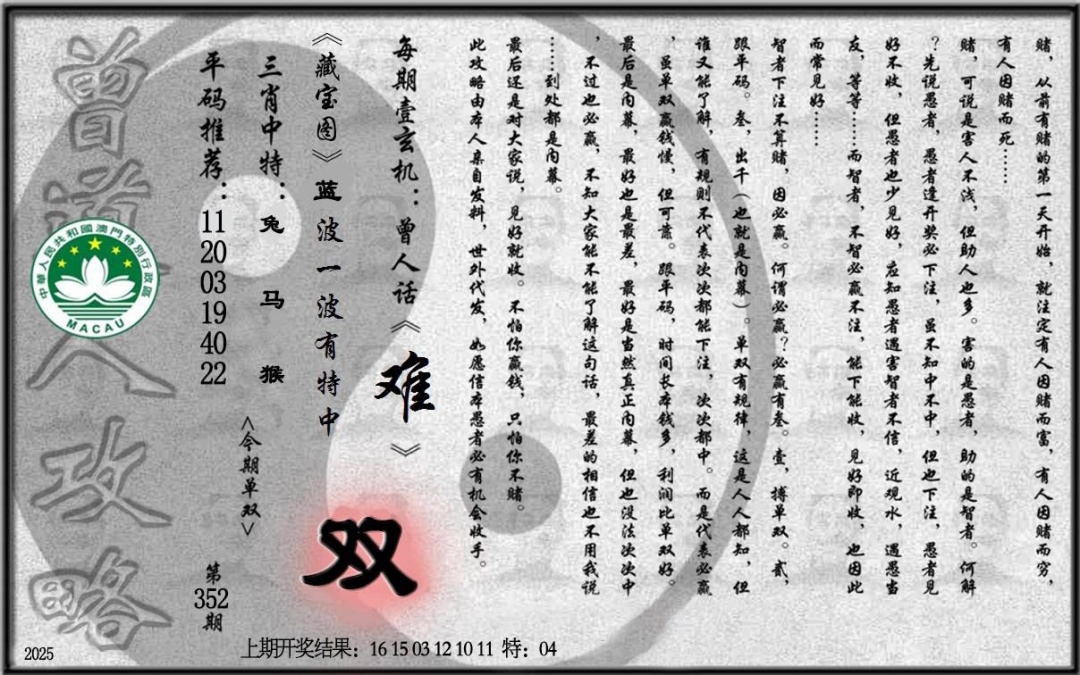 赌，从前有赌的第一天开始，就注定有人因赌而富，有人因赌而穷，
有人因赌而死……
赌，可说是害人不浅，但助人也多。害的是愚者，助的是智者。何解
？先说愚者，愚者逢开奖必下注，虽不知中不中，但也下注，愚者见
好不收，但愚者也少见好，应知愚者遇害智者不信，近观水，遇愚当
友，等等……而智者，不智必赢不注，能下能收，见好即收，也因此
而常见好……
智者下注不算赌，因必赢。何谓必赢？必赢有叁。壹，搏单双。贰，
跟平码。叁，出千（也就是内幕）。单双有规律，这是人人都知，但
谁又能了解，有规则不代表次次都能下注，次次都中。而是代表必赢
，虽单双赢钱慢，但可靠。跟平码，时间长本钱多，利润比单双好。
最后是内幕，最好也是最差，最好是当然真正内幕，但也没法次次中
，不过也必赢，不知大家能不能了解这句话，最差的相信也不用我说
……到处都是内幕。
最后还是对大家说，见好就收。不怕你赢钱，只怕你不赌。
此攻略由本人亲自发料，世外代发，如愿信本愚者必有机会收手。
每期壹玄机：曾人话《难》
《藏宝图》蓝波一波有特中
双
三肖中特：兔 马 猴
<今期单双>
平码推荐：11 20 03 19 40 22
第352期
曾道人攻略
中華人民共和國澳門特別行政區
MACAU
2025
上期开奖结果：16 15 03 12 10 11 特：04